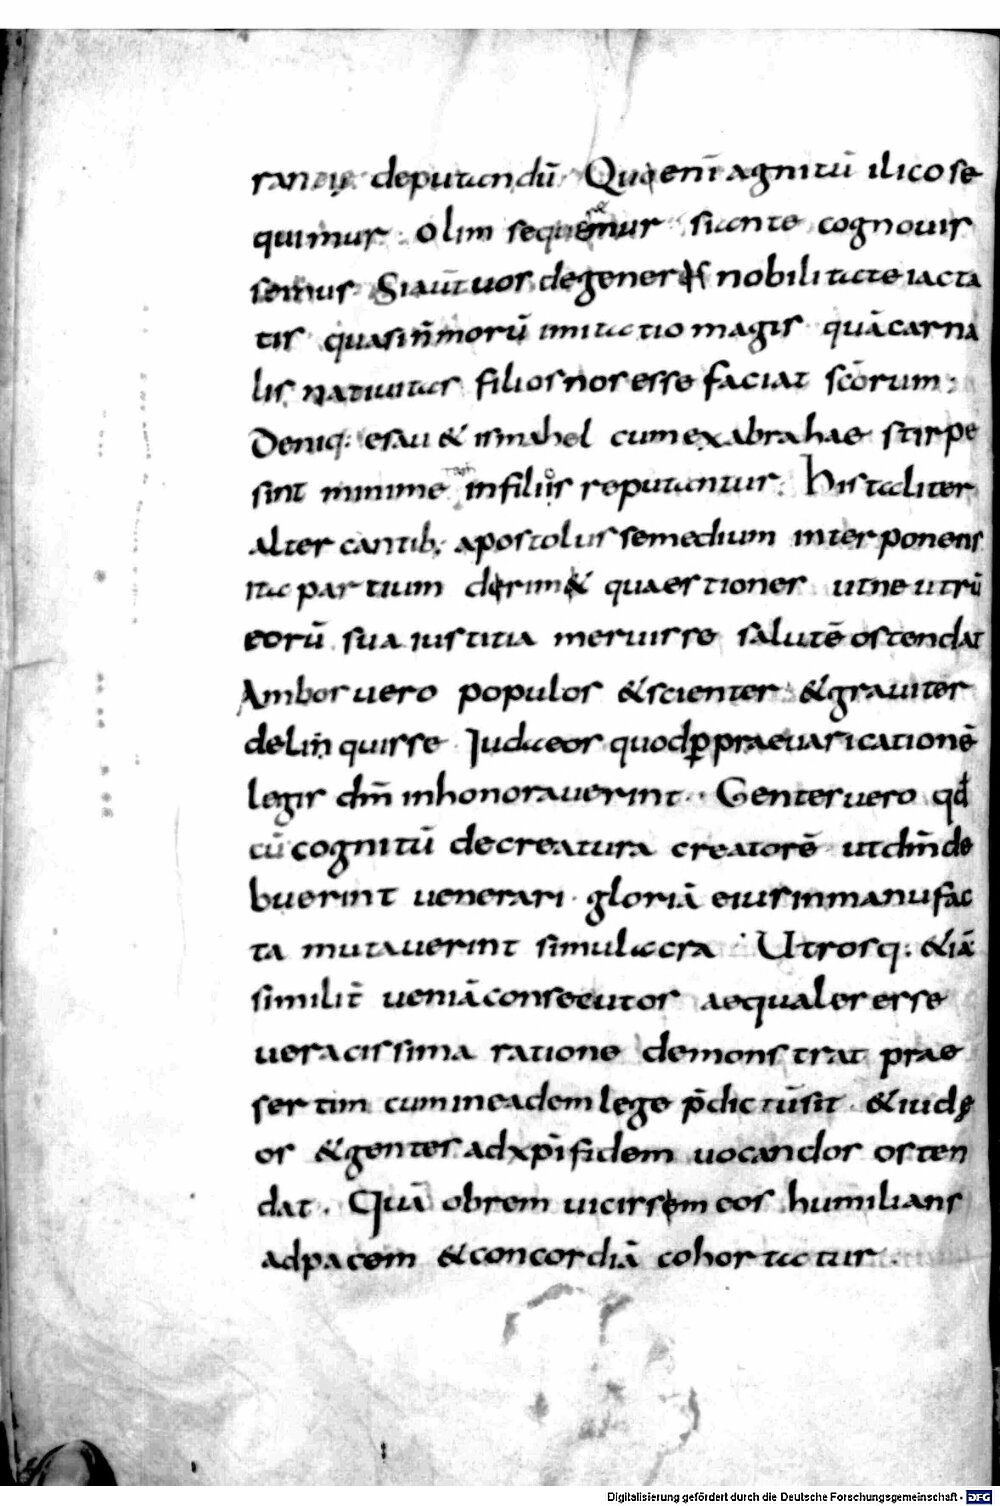 rantię deputandū Quoenī agnitū ilicose
quimur. olim sequemur siante cognouis
ne
semus. Siaut̄ uos degeneris nobilitate iacta
tis quasin̄morū imitatio magis quācarna
lis natiuitas filios nos esse faciat sc̄orum;
Deniq; esau & ismahel cum ex abrahae stirpe
sint minime infiliis reputantur. His taliter
alter cantib; apostolus semedium interponens
ita partium dirim& quaestiones utne utrū
eorū sua iustitia meruisse salutē ostendat
Ambos uero populos &scienter &grauiter
delin̄quisse Judaeos quod ꝑ praeuaricationē
legis dm̄ inhonorauerint. Gentes uero qđ
cū cognitū decreatura creatorē utdm̄ de
buerint uenerari gloriā eius inmanufac
ta mutauerint simulacra. Utrosq; &iā
similit̄ ueniā consecutos aequales esse
ueracissima ratione demonstrat prae
sertim cum ineadem lege p̄dictūsit &iudę
os &gentes adxp̄i fidem uocandos osten
dat. Quā obrem uicissem eos humilians
adpacem &concordiā cohortatur.
Digitalisierung gefördert durch die Deutsche Forschungsgemeinschaft - DFG